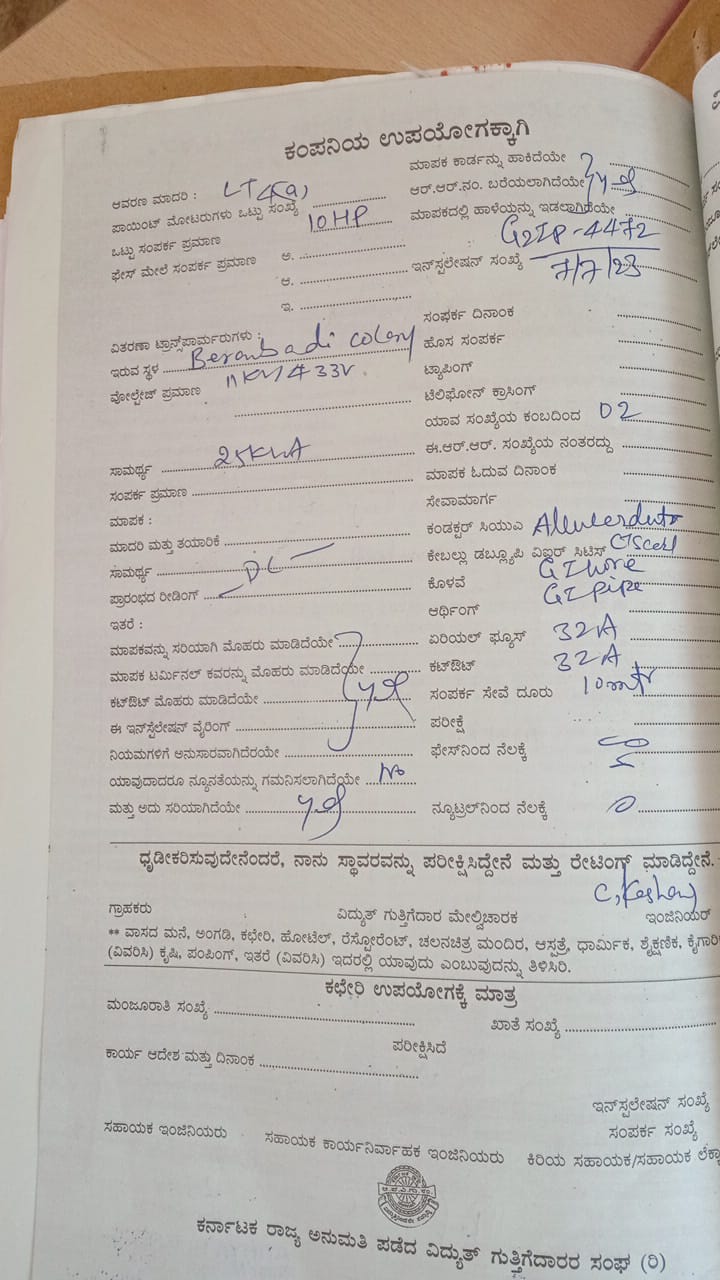 ಕಂಪನಿಯ ಉಪಯೋಗಕ್ಕಾಗಿ
ಆವರಣ ಮಾದರಿ : LT4(a)
ಪಾಯಿಂಟ್ ಮೋಟರುಗಳು ಒಟ್ಟು ಸಂಖ್ಯೆ 10HP
ಒಟ್ಟು ಸಂಪರ್ಕ ಪ್ರಮಾಣ
ಫೇಸ್ ಮೇಲೆ ಸಂಪರ್ಕ ಪ್ರಮಾಣ ಅ.
ಆ.
ಇ.
ವಿತರಣಾ ಟ್ರಾನ್ಸ್‌ಪಾರ್ಮರುಗಳು :
ಇರುವ ಸ್ಥಳ Berambadi colony
ವೋಲ್ಟೇಜ್ ಪ್ರಮಾಣ 11KV/433V
ಸಾಮರ್ಥ್ಯ 25KVA
ಸಂಪರ್ಕ ಪ್ರಮಾಣ
ಮಾಪಕ :
ಮಾದರಿ ಮತ್ತು ತಯಾರಿಕೆ
ಸಾಮರ್ಥ್ಯ DC
ಪ್ರಾರಂಭದ ರೀಡಿಂಗ್
ಇತರೆ :
ಮಾಪಕವನ್ನು ಸರಿಯಾಗಿ ಮೊಹರು ಮಾಡಿದೆಯೇ
ಮಾಪಕ ಟರ್ಮಿನಲ್ ಕವರನ್ನು ಮೊಹರು ಮಾಡಿದೆಯೇ
ಕಟ್‌ಔಟ್ ಮೊಹರು ಮಾಡಿದೆಯೇ yes
ಈ ಇನ್‌ಸ್ಟೆಲೇಷನ್ ವೈರಿಂಗ್
ನಿಯಮಗಳಿಗೆ ಅನುಸಾರವಾಗಿದೆರಯೇ
ಯಾವುದಾದರೂ ನ್ಯೂನತೆಯನ್ನು ಗಮನಿಸಲಾಗಿದೆಯೇ No
ಮತ್ತು ಅದು ಸರಿಯಾಗಿದೆಯೇ yes
ಮಾಪಕ ಕಾರ್ಡನ್ನು ಹಾಕಿದೆಯೇ
ಆರ್.ಆರ್.ನಂ. ಬರೆಯಲಾಗಿದೆಯೇ yes
ಮಾಪಕದಲ್ಲಿ ಹಾಳೆಯನ್ನು ಇಡಲಾಗಿದೆಯೇ
G2IP-4472
ಇನ್‌ಸ್ಟಲೇಷನ್ ಸಂಖ್ಯೆ 7/7/23
ಸಂಪರ್ಕ ದಿನಾಂಕ
ಹೊಸ ಸಂಪರ್ಕ
ಟ್ಯಾಪಿಂಗ್
ಟೆಲಿಫೋನ್ ಕ್ರಾಸಿಂಗ್
ಯಾವ ಸಂಖ್ಯೆಯ ಕಂಬದಿಂದ 02
ಈ.ಆರ್.ಆರ್. ಸಂಖ್ಯೆಯ ನಂತರದ್ದು
ಮಾಪಕ ಓದುವ ದಿನಾಂಕ
ಸೇವಾಮಾರ್ಗ
ಕಂಡಕ್ಟರ್ ಸಿಯುಎ
ಕೇಬಲ್ಲು ಡಬ್ಲ್ಯೂಪಿ ವಿಐಆರ್ ಸಿಟಿಸ್
ಕೊಳವೆ GI wire
GI pipe
ಆರ್ಥಿಂಗ್
ಏರಿಯಲ್ ಫ್ಯೂಸ್ 32A
ಕಟ್‌ಔಟ್ 32A
ಸಂಪರ್ಕ ಸೇವೆ ದೂರು 10mtr
ಪರೀಕ್ಷೆ
ಫೇಸ್‌ನಿಂದ ನೆಲಕ್ಕೆ
ನ್ಯೂಟ್ರಲ್‌ನಿಂದ ನೆಲಕ್ಕೆ 0
ಧೃಡೀಕರಿಸುವುದೇನೆಂದರೆ, ನಾನು ಸ್ಥಾವರವನ್ನು ಪರೀಕ್ಷಿಸಿದ್ದೇನೆ ಮತ್ತು ರೇಟಿಂಗ್ ಮಾಡಿದ್ದೇನೆ.
ಗ್ರಾಹಕರು ವಿದ್ಯುತ್ ಗುತ್ತಿಗೆದಾರ ಮೇಲ್ವಿಚಾರಕ ಇಂಜಿನಿಯರ್
** ವಾಸದ ಮನೆ, ಅಂಗಡಿ, ಕಛೇರಿ, ಹೋಟೆಲ್, ರೆಸ್ಟೋರೆಂಟ್, ಚಲನಚಿತ್ರ ಮಂದಿರ, ಆಸ್ಪತ್ರೆ, ಧಾರ್ಮಿಕ, ಶೈಕ್ಷಣಿಕ, ಕೈಗಾರಿ
(ವಿವರಿಸಿ) ಕೃಷಿ, ಪಂಪಿಂಗ್, ಇತರೆ (ವಿವರಿಸಿ) ಇದರಲ್ಲಿ ಯಾವುದು ಎಂಬುವುದನ್ನು ತಿಳಿಸಿರಿ.
ಕಛೇರಿ ಉಪಯೋಗಕ್ಕೆ ಮಾತ್ರ
ಮಂಜೂರಾತಿ ಸಂಖ್ಯೆ ಖಾತೆ ಸಂಖ್ಯೆ
ಪರೀಕ್ಷಿಸಿದೆ
ಕಾರ್ಯ ಆದೇಶ ಮತ್ತು ದಿನಾಂಕ
ಇನ್‌ಸ್ಟಲೇಷನ್ ಸಂಖ್ಯೆ
ಸಂಪರ್ಕ ಸಂಖ್ಯೆ
ಸಹಾಯಕ ಇಂಜಿನಿಯರು ಸಹಾಯಕ ಕಾರ್ಯನಿರ್ವಾಹಕ ಇಂಜಿನಿಯರು ಕಿರಿಯ ಸಹಾಯಕ/ಸಹಾಯಕ ಲೆಕ್ಕಾ
ಕರ್ನಾಟಕ ರಾಜ್ಯ ಅನುಮತಿ ಪಡೆದ ವಿದ್ಯುತ್ ಗುತ್ತಿಗೆದಾರರ ಸಂಘ (ರಿ)